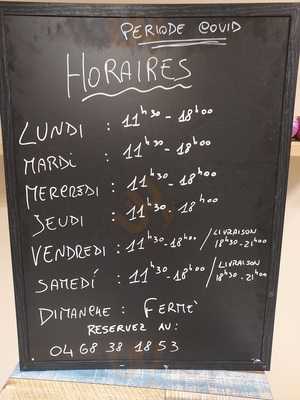 PERIODE COVID
HORAIRES
LUNDI : 11h30 - 18h00
MARDI : 11h30 - 18h00
MERCREDI : 11h30 - 18h00
JEUDI : 11h30 - 18h00
VENDREDI : 11h30 - 18h00 / LIVRAISON 18h30 - 21h00
SAMEDÍ : 11h30 - 18h00 / LIVRAISON 18h30 - 21h00
DIMANCHE : FERMÈ
RESERVEZ AU :
04 68 38 18 53